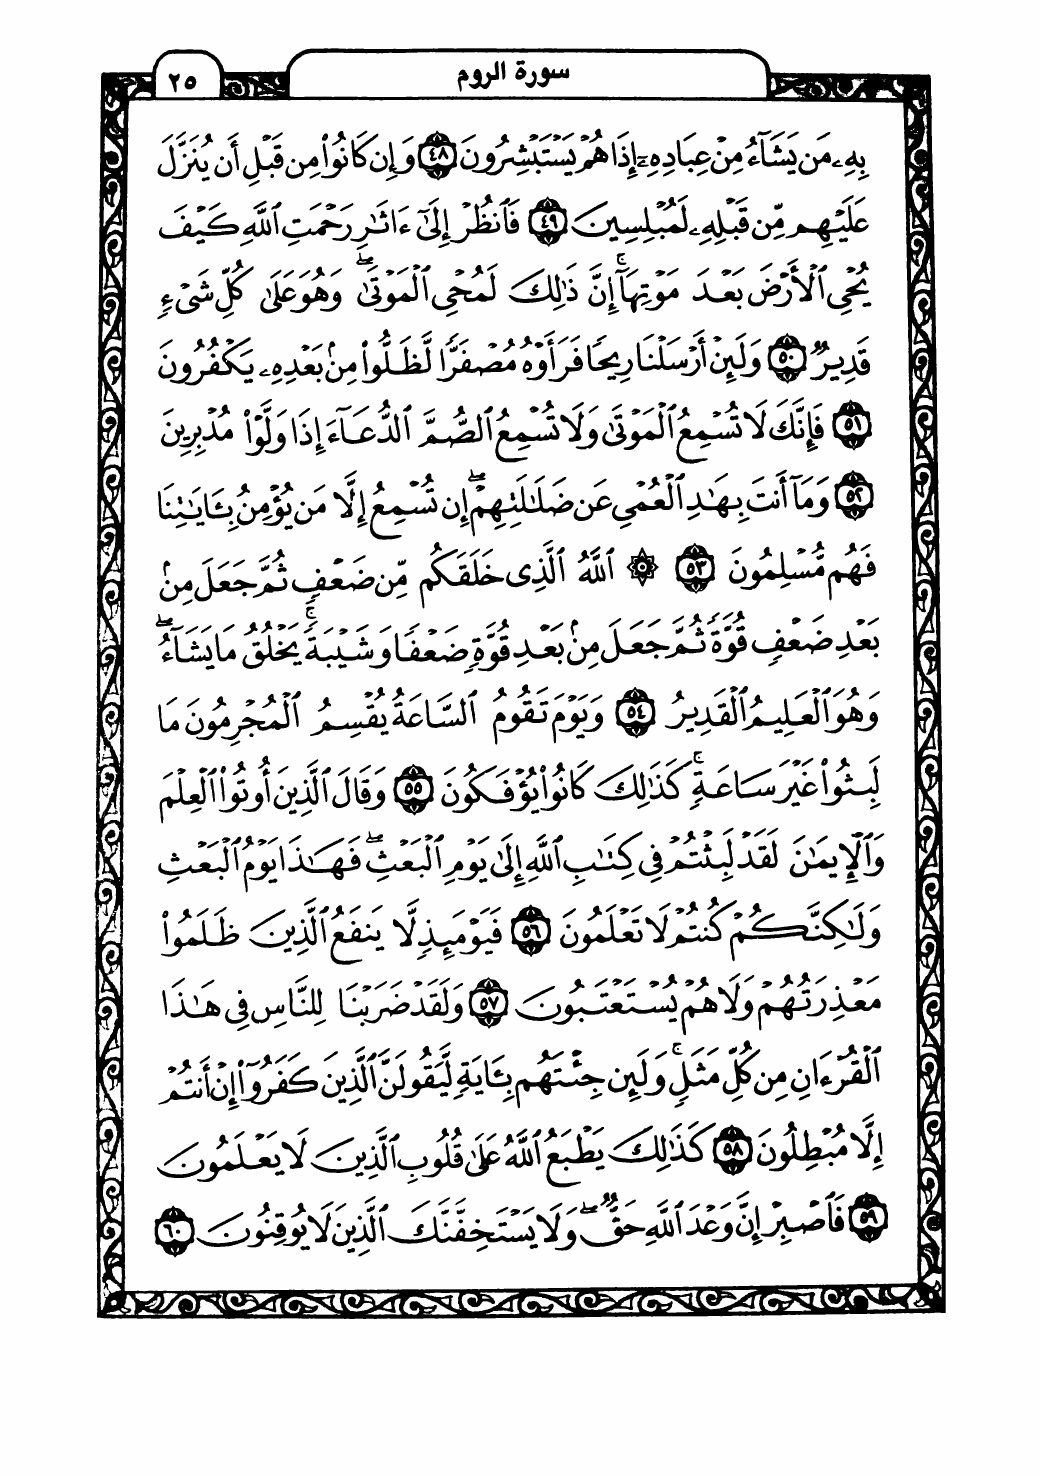 سورة الروم
٢٥
بِهِۦ مَن يَشَآءُ مِنْ عِبَادِهِۦٓ إِذَا هُمْ يَسْتَبْشِرُونَ ٤٨ وَإِن كَانُوا۟ مِن قَبْلِ أَن يُنَزَّلَ
عَلَيْهِم مِّن قَبْلِهِۦ لَمُبْلِسِينَ ٤٩ فَٱنظُرْ إِلَىٰٓ ءَاثَٰرِ رَحْمَتِ ٱللَّهِ كَيْفَ
يُحْىِ ٱلْأَرْضَ بَعْدَ مَوْتِهَآ ۚ إِنَّ ذَٰلِكَ لَمُحْىِ ٱلْمَوْتَىٰ ۖ وَهُوَ عَلَىٰ كُلِّ شَىْءٍ
قَدِيرٌ ٥٠ وَلَئِنْ أَرْسَلْنَا رِيحًا فَرَأَوْهُ مُصْفَرًّا لَّظَلُّوا۟ مِنۢ بَعْدِهِۦ يَكْفُرُونَ
٥١ فَإِنَّكَ لَا تُسْمِعُ ٱلْمَوْتَىٰ وَلَا تُسْمِعُ ٱلصُّمَّ ٱلدُّعَآءَ إِذَا وَلَّوْا۟ مُدْبِرِينَ
٥٢ وَمَآ أَنتَ بِهَٰدِ ٱلْعُمْىِ عَن ضَلَٰلَتِهِمْ ۖ إِن تُسْمِعُ إِلَّا مَن يُؤْمِنُ بِـَٔايَٰتِنَا
فَهُم مُّسْلِمُونَ ٥٣ ۞ ٱللَّهُ ٱلَّذِى خَلَقَكُم مِّن ضَعْفٍ ثُمَّ جَعَلَ مِنۢ
بَعْدِ ضَعْفٍ قُوَّةً ثُمَّ جَعَلَ مِنۢ بَعْدِ قُوَّةٍ ضَعْفًا وَشَيْبَةً ۚ يَخْلُقُ مَا يَشَآءُ ۖ
وَهُوَ ٱلْعَلِيمُ ٱلْقَدِيرُ ٥٤ وَيَوْمَ تَقُومُ ٱلسَّاعَةُ يُقْسِمُ ٱلْمُجْرِمُونَ مَا
لَبِثُوا۟ غَيْرَ سَاعَةٍ ۚ كَذَٰلِكَ كَانُوا۟ يُؤْفَكُونَ ٥٥ وَقَالَ ٱلَّذِينَ أُوتُوا۟ ٱلْعِلْمَ
وَٱلْإِيمَٰنَ لَقَدْ لَبِثْتُمْ فِى كِتَٰبِ ٱللَّهِ إِلَىٰ يَوْمِ ٱلْبَعْثِ ۖ فَهَٰذَا يَوْمُ ٱلْبَعْثِ
وَلَٰكِنَّكُمْ كُنتُمْ لَا تَعْلَمُونَ ٥٦ فَيَوْمَئِذٍ لَّا يَنفَعُ ٱلَّذِينَ ظَلَمُوا۟
مَعْذِرَتُهُمْ وَلَا هُمْ يُسْتَعْتَبُونَ ٥٧ وَلَقَدْ ضَرَبْنَا لِلنَّاسِ فِى هَٰذَا
ٱلْقُرْءَانِ مِن كُلِّ مَثَلٍ ۚ وَلَئِن جِئْتَهُم بِـَٔايَةٍ لَّيَقُولَنَّ ٱلَّذِينَ كَفَرُوٓا۟ إِنْ أَنتُمْ
إِلَّا مُبْطِلُونَ ٥٨ كَذَٰلِكَ يَطْبَعُ ٱللَّهُ عَلَىٰ قُلُوبِ ٱلَّذِينَ لَا يَعْلَمُونَ
٥٩ فَٱصْبِرْ إِنَّ وَعْدَ ٱللَّهِ حَقٌّ ۖ وَلَا يَسْتَخِفَّنَّكَ ٱلَّذِينَ لَا يُوقِنُونَ ٦٠